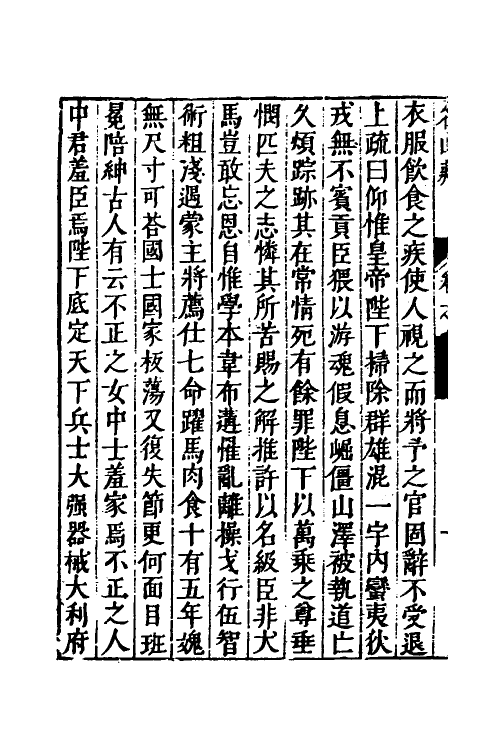 衣服飲食之疾使人視之而將予之官固辭不受退
上疏曰仰惟皇帝陛下掃除群雄混一宇內蠻夷狄
戎無不賓貢臣猥以游魂假息崛僵山澤被執道亡
久煩踪跡其在常情死有餘罪陛下以萬乘之尊垂
憫匹夫之志憐其所苦賜之解推許以名級臣非犬
馬豈敢忘恩自惟學本韋布遘罹亂離操戈行伍智
術粗淺遇蒙主將薦仕七命躍馬肉食十有五年媿
無尺寸可荅國士國家板蕩又復失節更何面目班
冕陪紳古人有云不正之女中士羞家焉不正之人
中君羞臣焉陛下底定天下兵士大强器械大利府